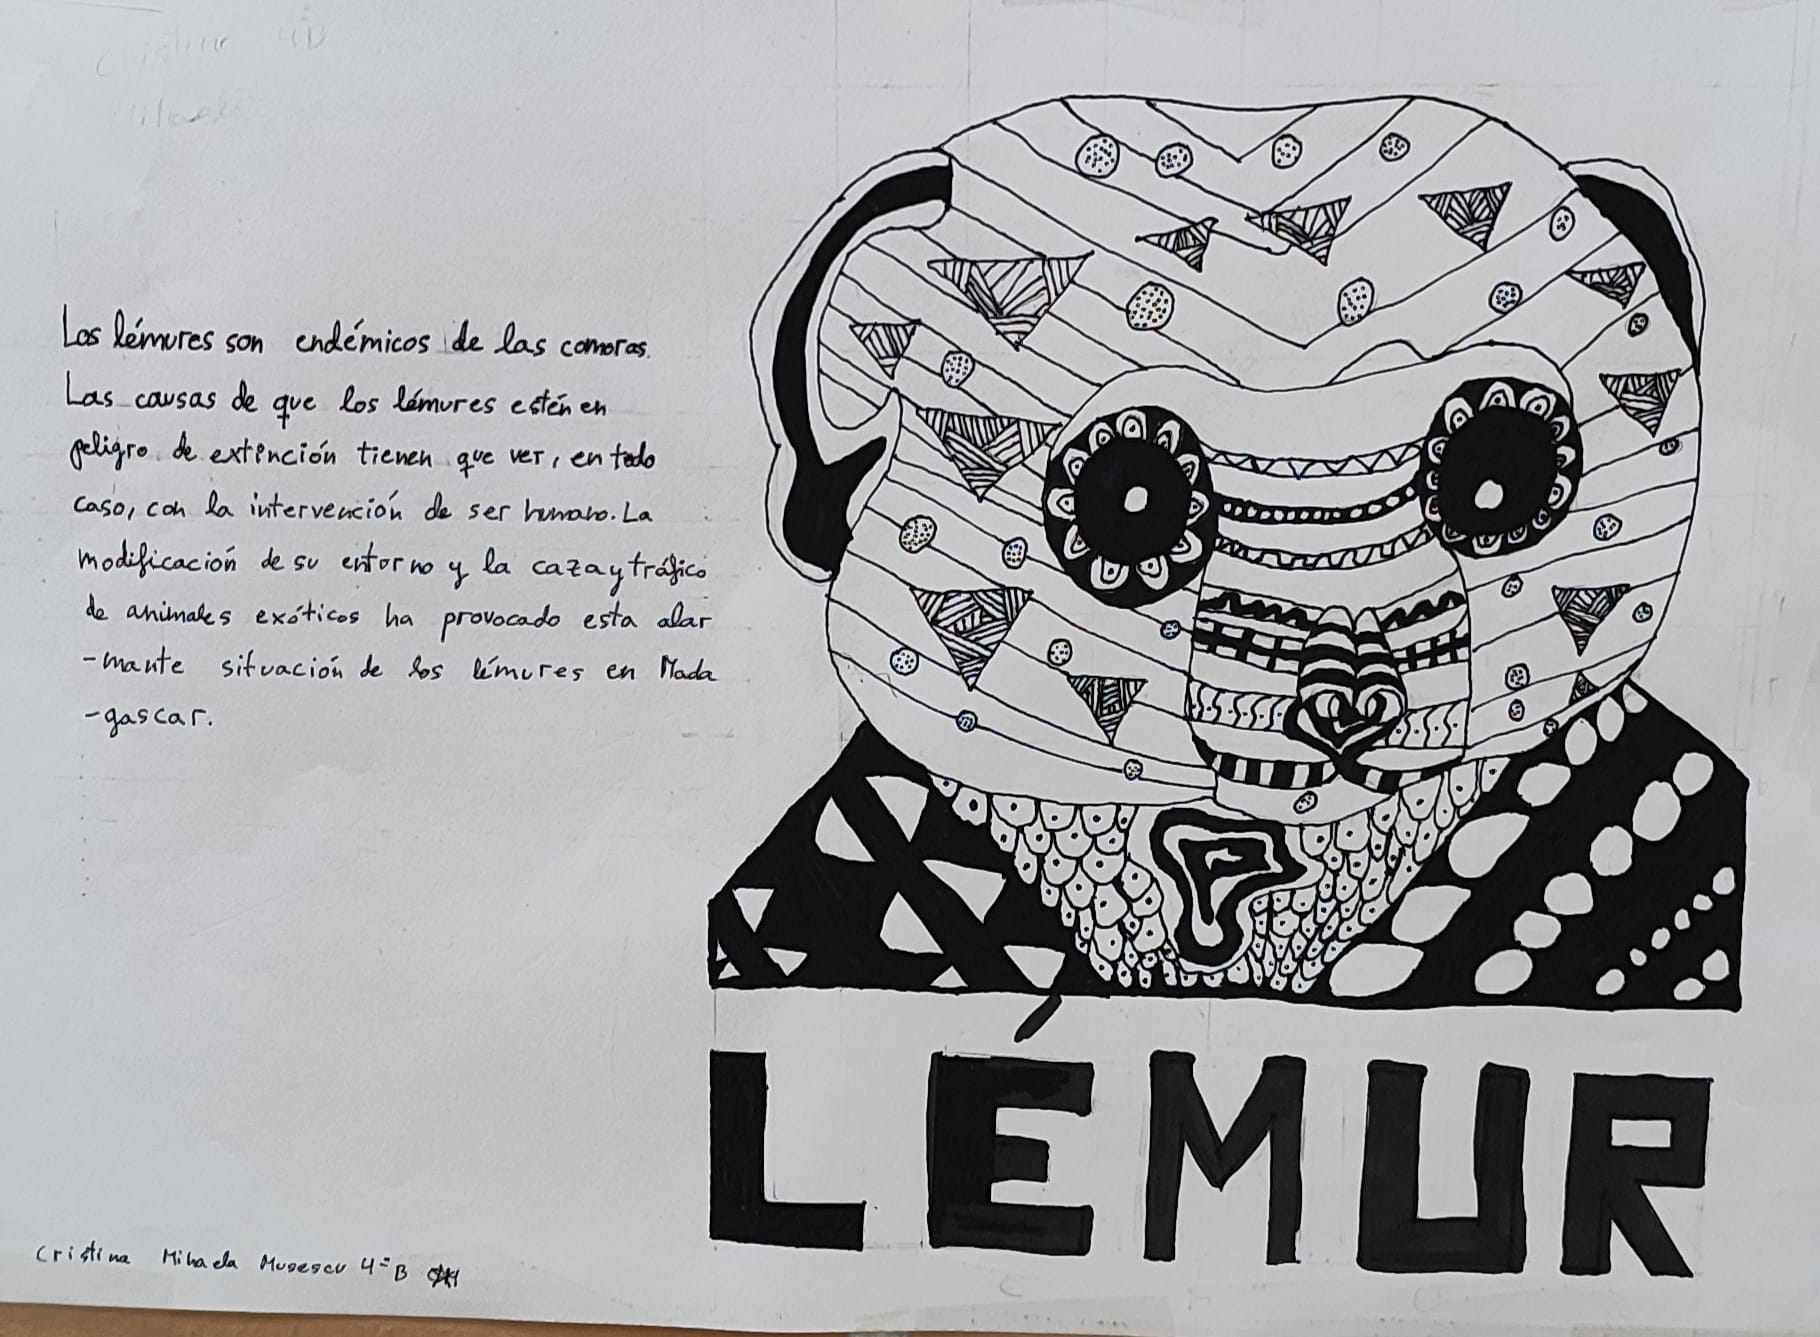 Cristina 4B
Los lémures son endémicos de las comoras.
Las causas de que los lémures estén en
peligro de extinción tienen que ver, en todo
caso, con la intervención de ser humano. La
modificación de su entorno y la caza y tráfico
de animales exóticos ha provocado esta alar
-mante situación de los lémures en Mada
-gascar.
LÉMUR
Cristina Mihaela Musescu 4º B